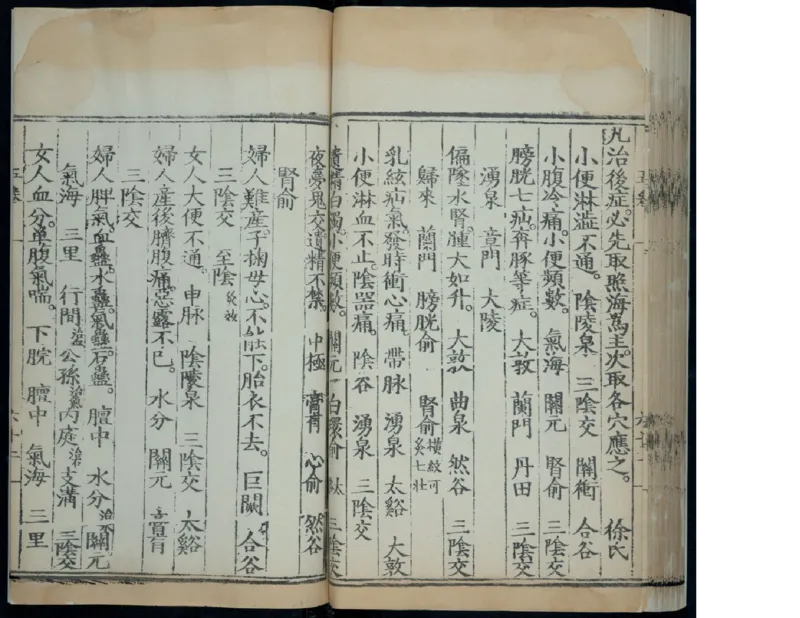 凡治後症。必先取照海爲主。次取各穴應之。 徐氏
小便淋澁不通。 陰陵泉 三陰交 關衝 合谷
小腹冷痛。小便頻數。 氣海 關元 腎俞 三陰交
膀胱七疝。奔豚等症。 大敦 蘭門 丹田 三陰交
湧泉 章門 大陵
偏墜水腎。腫大如升。 大敦 曲泉 然谷 三陰交
歸來 蘭門 膀胱俞 腎俞橫紋可灸七壯
乳絃疝氣。發時衝心痛。 帶脉 湧泉 太谿 大敦
小便淋血不止。陰器痛。 陰谷 湧泉 三陰交
遺精白濁。小便頻數。 關元 白環俞 太 三陰交
夜夢鬼交遺精不禁。 中極 膏肓 心俞 然谷
腎俞
婦人難產。子掬母心。不能下。胎衣不去。 巨闕 合谷
三陰交 至陰灸效
女人大便不通。 申脉 陰陵泉 三陰交 太谿
婦人產後臍腹痛。惡露不已。 水分 關元 膏肓
三陰交
婦人脾氣。血蠱。水蠱。氣蠱。石蠱。 膻中 水分治水 關元
氣海 三里 行間治血 公孫治氣 内庭治石 支溝 三陰交
女人血分。單腹氣喘。 下脘 膻中 氣海 三里